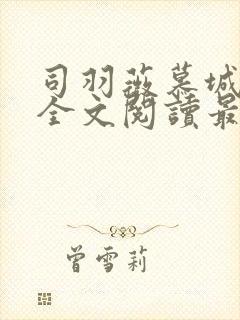 司羽薇慕城
全文閱讀最
曾雪莉